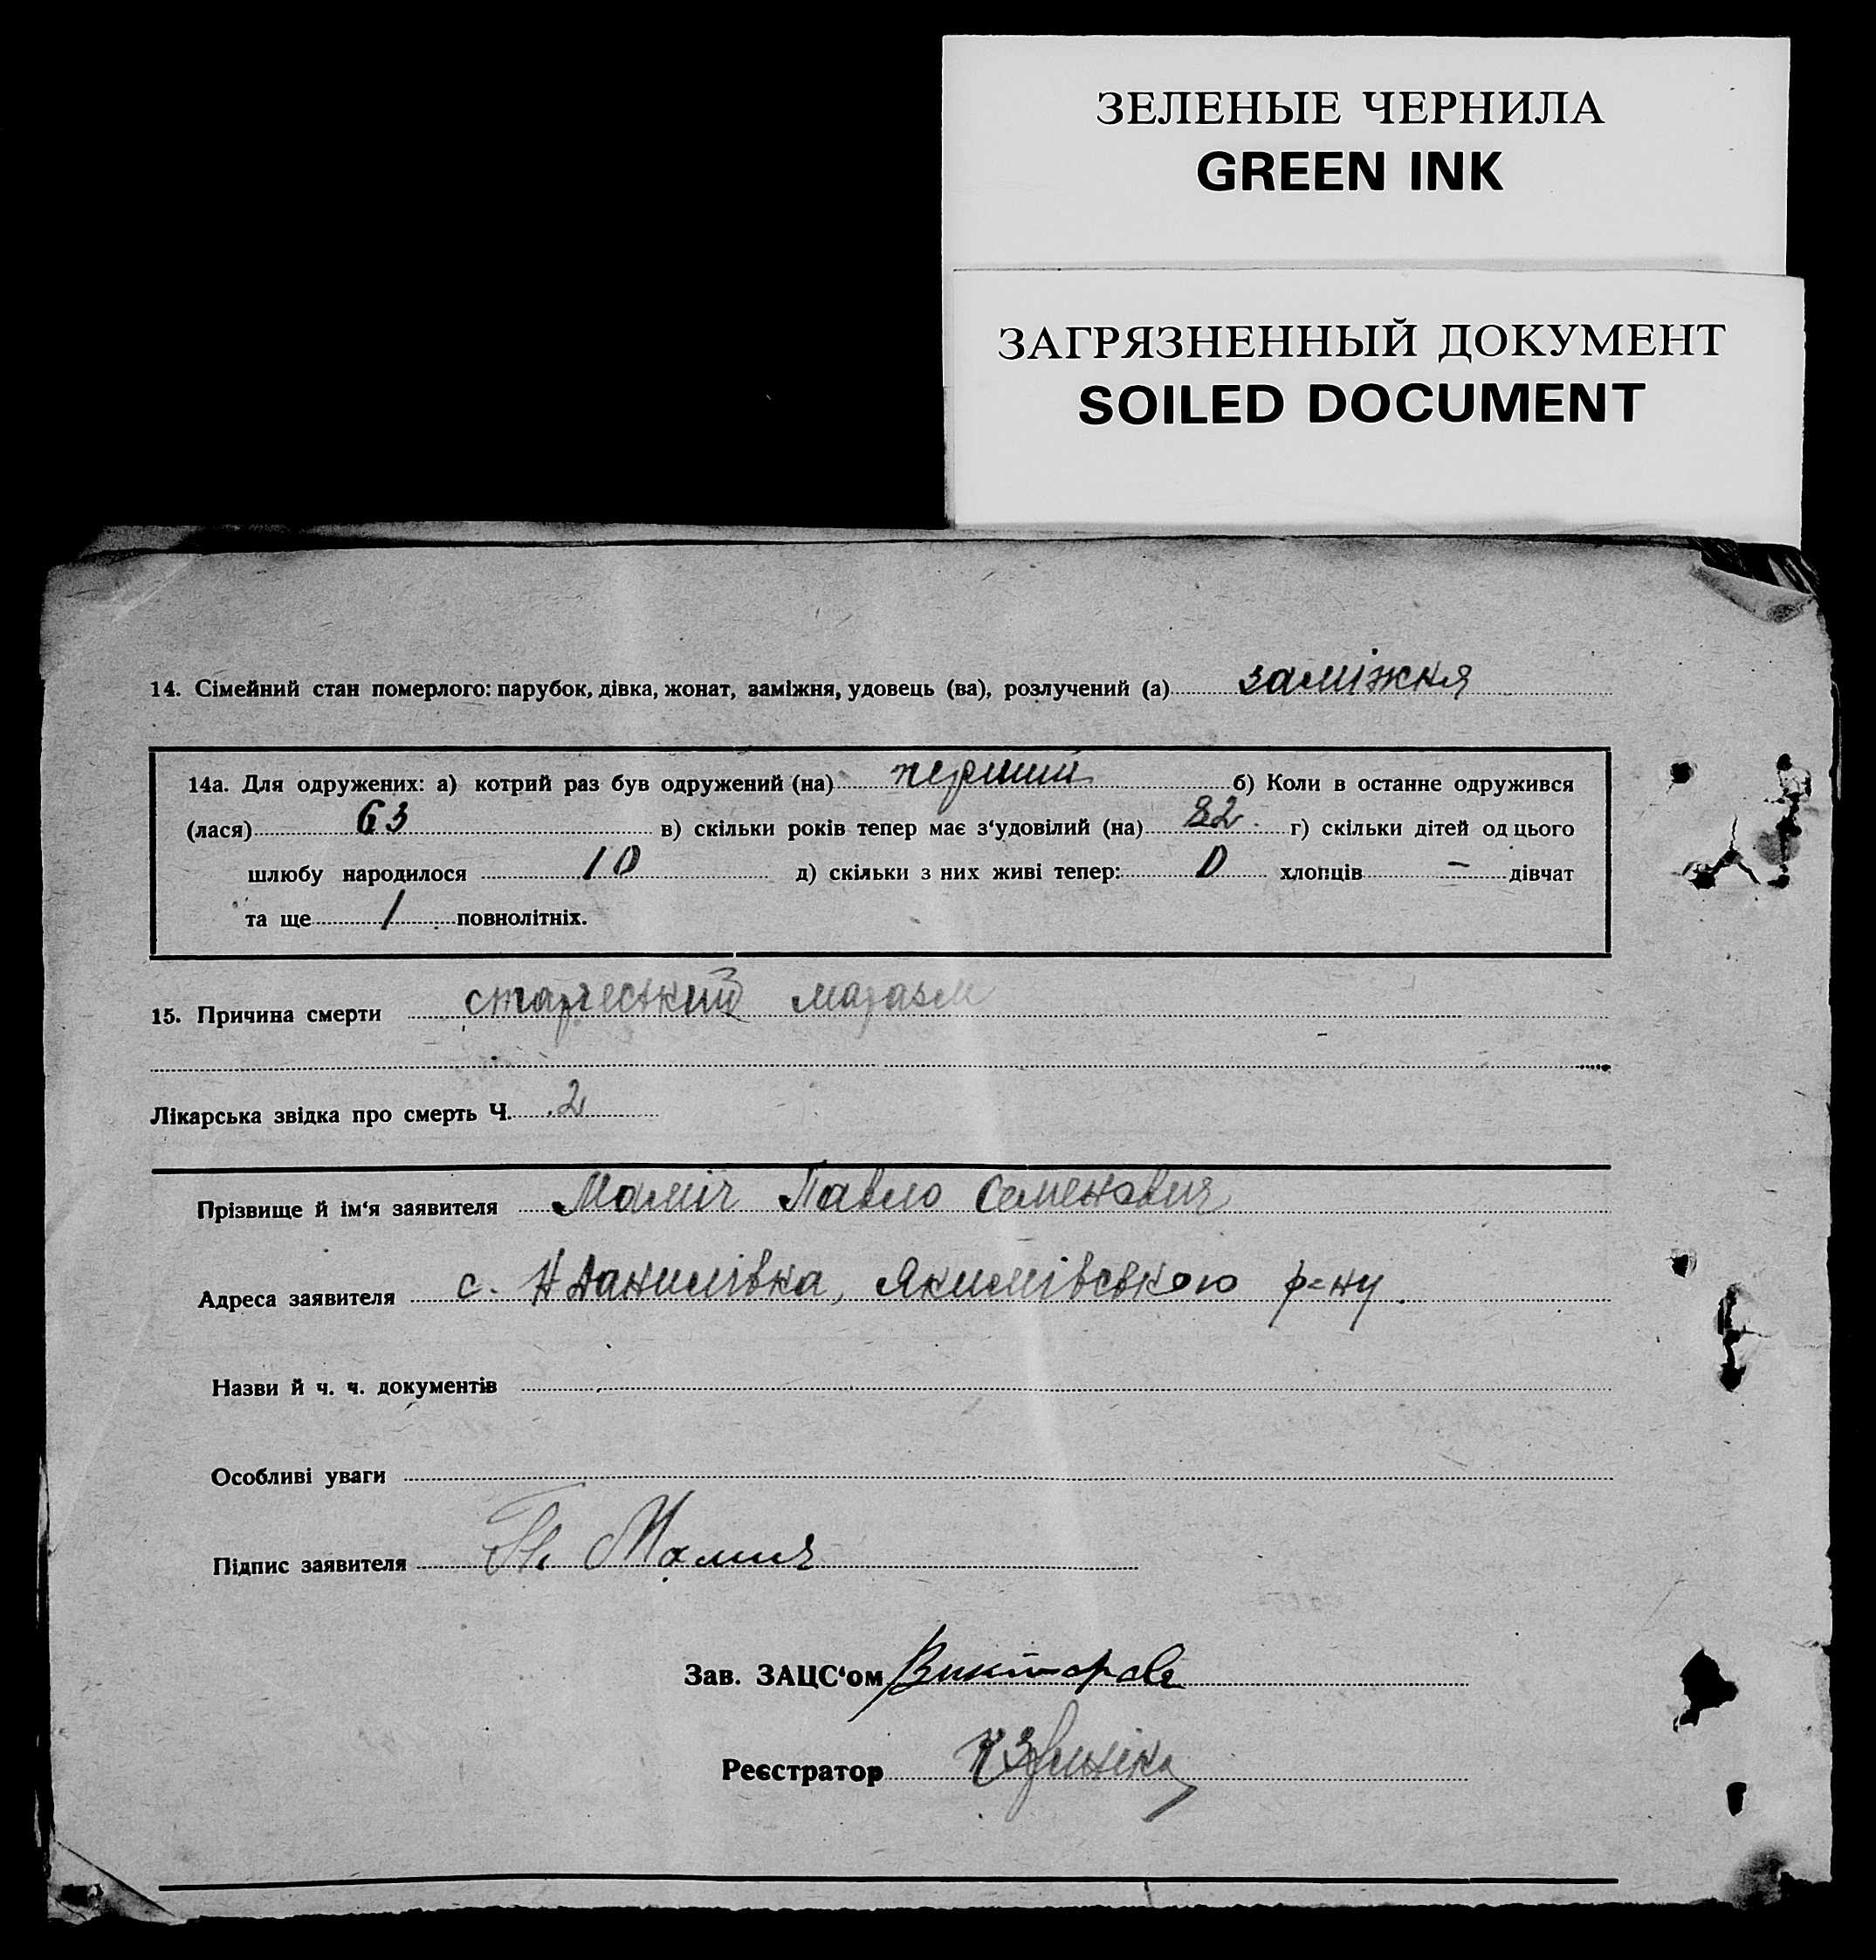 ЗЕЛЕНЫЕ ЧЕРНИЛА
GREEN INK
ЗАГРЯЗНЕННЫЙ ДОКУМЕНТ
SOILED DOCUMENT
14. Сімейний стан померлого: парубок, дівка, жонат, заміжня, удовець (ва), розлучений (а) заміжня
14а. Для одружених: а) котрий раз був одружений (на) перший б) Коли в останне одружився
(лася) 63 в) скільки років тепер має з‘удовілий (на) 82 г) скільки дітей од цього
шлюбу народилося 10 д) скільки з них живі тепер: 0 хлопців — дівчат
та ще 1 повнолітніх.
15. Причина смерти старческий маразм
Лікарська звідка про смерть Ч. 2
Прізвище й ім‘я заявителя Маміч Павло Семенович
Адреса заявителя с. Н Данилівка, Якимівського р-ну.
Назви й ч. ч. документів
Особливі уваги
Підпис заявителя П. Мамич
Зав. ЗАЦС‘ом Викторова
Реєстратор